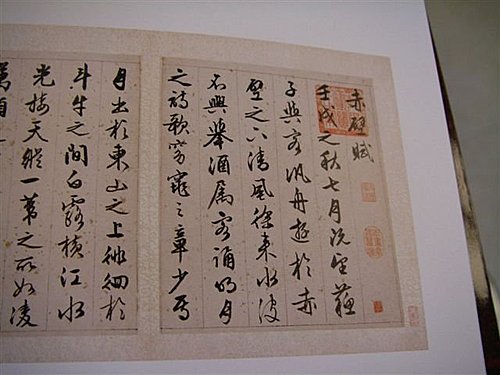 赤壁賦
壬戌之秋七月既望蘇
子與客汎舟遊於赤
壁之下清風徐來水波
不興舉酒屬客誦明月
之詩歌窈窕之章少焉
月出於東山之上徘徊於
斗牛之間白露橫江水
光接天縱一葦之所如凌
萬頃